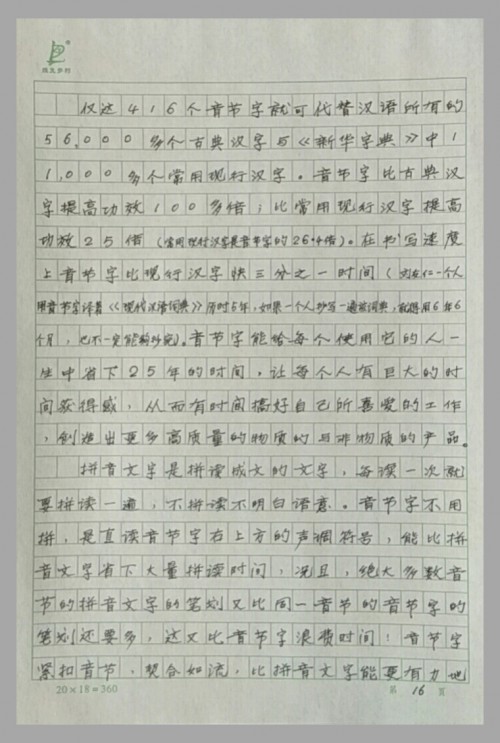 仅这416个音节字就可代替汉语所有的
56,000多个古典汉字与《新华字典》中1
1,000多个常用现行汉字。音节字比古典汉
字提高功效100多倍；比常用现行汉字提高
功效25倍(常用现行汉字是音节字的26.4倍)。在书写速度
上音节字比现行汉字快三分之一时间(刘在仁一个人
用音节字译著《现代汉语词典》历时5年,如果一个人抄写一遍该词典,就得用6年6
个月，也不一定能抄完)。音节字能给每个使用它的人一
生中省下25年的时间，让每个人有巨大的时
间获得感，从而有时间搞好自己所喜爱的工作
，创造出更多高质量的物质的与非物质的产品。
拼音文字是拼读成文的文字，每读一次就
要拼读一遍，不拼读不明白语意。音节字不用
拼，是直读音节字右上方的声调符号，能比拼
音文字省下大量拼读时间，况且，绝大多数音
节的拼音文字的笔划又比同一音节的音节字的
笔划还要多，这又比音节字浪费时间；音节字
紧扣音节，契合如流，比拼音文字能更有力地
20×18=360 第 16 页